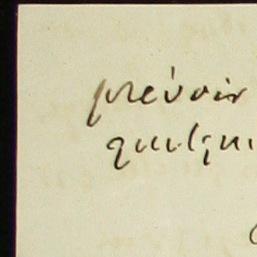 prévoir
quelqu